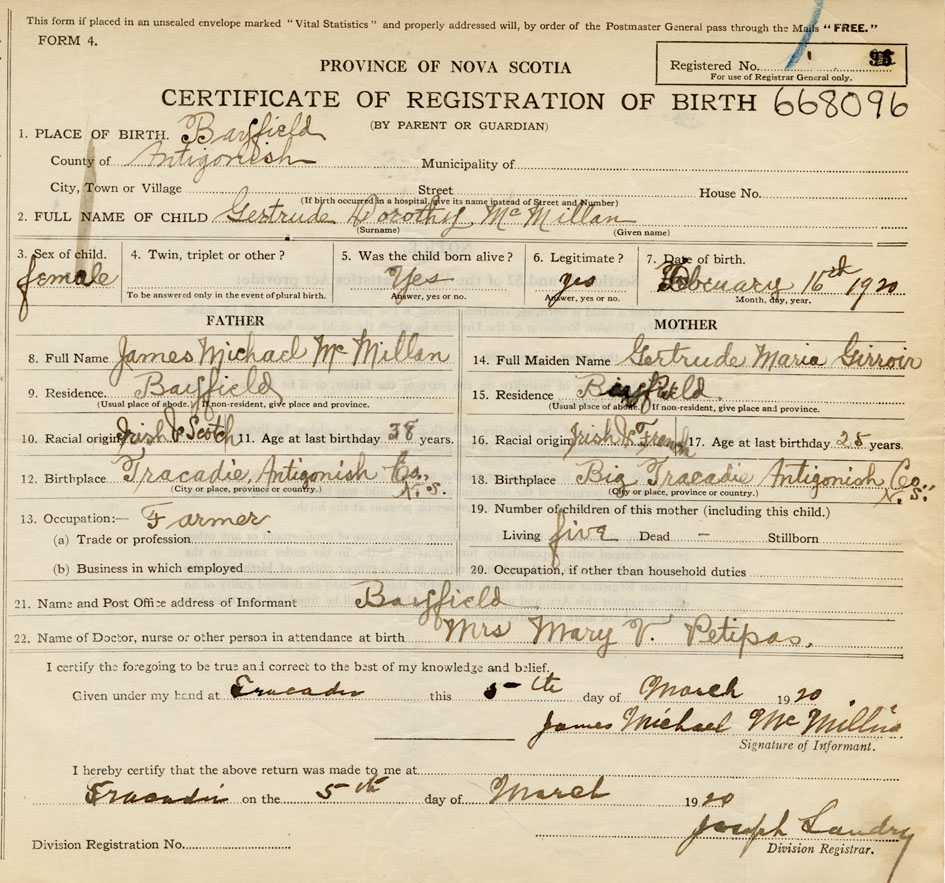 This form if placed in an unsealed envelope marked "Vital Statistics" and properly addressed will, by order of the Postmaster General pass through the Mails "FREE."
FORM 4.
Registered No.
For use of Registrar General only.
PROVINCE OF NOVA SCOTIA
CERTIFICATE OF REGISTRATION OF BIRTH 668096
(BY PARENT OR GUARDIAN)
1. PLACE OF BIRTH. Bayfield
County of Antigonish Municipality of
City, Town or Village Street House No.
(If birth occurred in a hospital, give its name instead of Street and Number)
2. FULL NAME OF CHILD Gertrude Dorothy McMillan
(Surname) (Given name)
3. Sex of child. 4. Twin, triplet or other? 5. Was the child born alive? 6. Legitimate? 7. Date of birth.
female Yes yes February 16th 1920
To be answered only in the event of plural birth. Answer, yes or no. Answer, yes or no. Month, day, year.
FATHER MOTHER
8. Full Name James Michael McMillan 14. Full Maiden Name Gertrude Maria Girroir
9. Residence. Bayfield 15. Residence Bayfield
(Usual place of abode. If non-resident, give place and province. (Usual place of abode. If non-resident, give place and province.
10. Racial origin Irish & Scotch 11. Age at last birthday 38 years. 16. Racial origin Irish & French 17. Age at last birthday 25 years.
12. Birthplace Tracadie, Antigonish Co., N.S. 18. Birthplace Big Tracadie Antigonish Co., N.S.
(City or place, province or country.) (City or place, province or country.)
13. Occupation:— Farmer 19. Number of children of this mother (including this child.)
(a) Trade or profession Living five Dead – Stillborn
(b) Business in which employed 20. Occupation, if other than household duties
21. Name and Post Office address of Informant Bayfield
22. Name of Doctor, nurse or other person in attendance at birth Mrs Mary V. Petipas.
I certify the foregoing to be true and correct to the best of my knowledge and belief.
Given under my hand at Tracadie this 5th day of March 1920
James Michael McMillan
Signature of Informant.
I hereby certify that the above return was made to me at
Tracadie on the 5th day of March 1920
Joseph Landry
Division Registration No. Division Registrar.